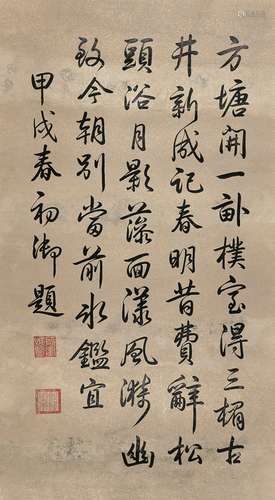 方塘開一畝樸室得三楹古
井新成記春明昔費辭松
頭浴月影藻面漾風漪幽
致今朝別當前冰鑑宜
甲戌春初御題